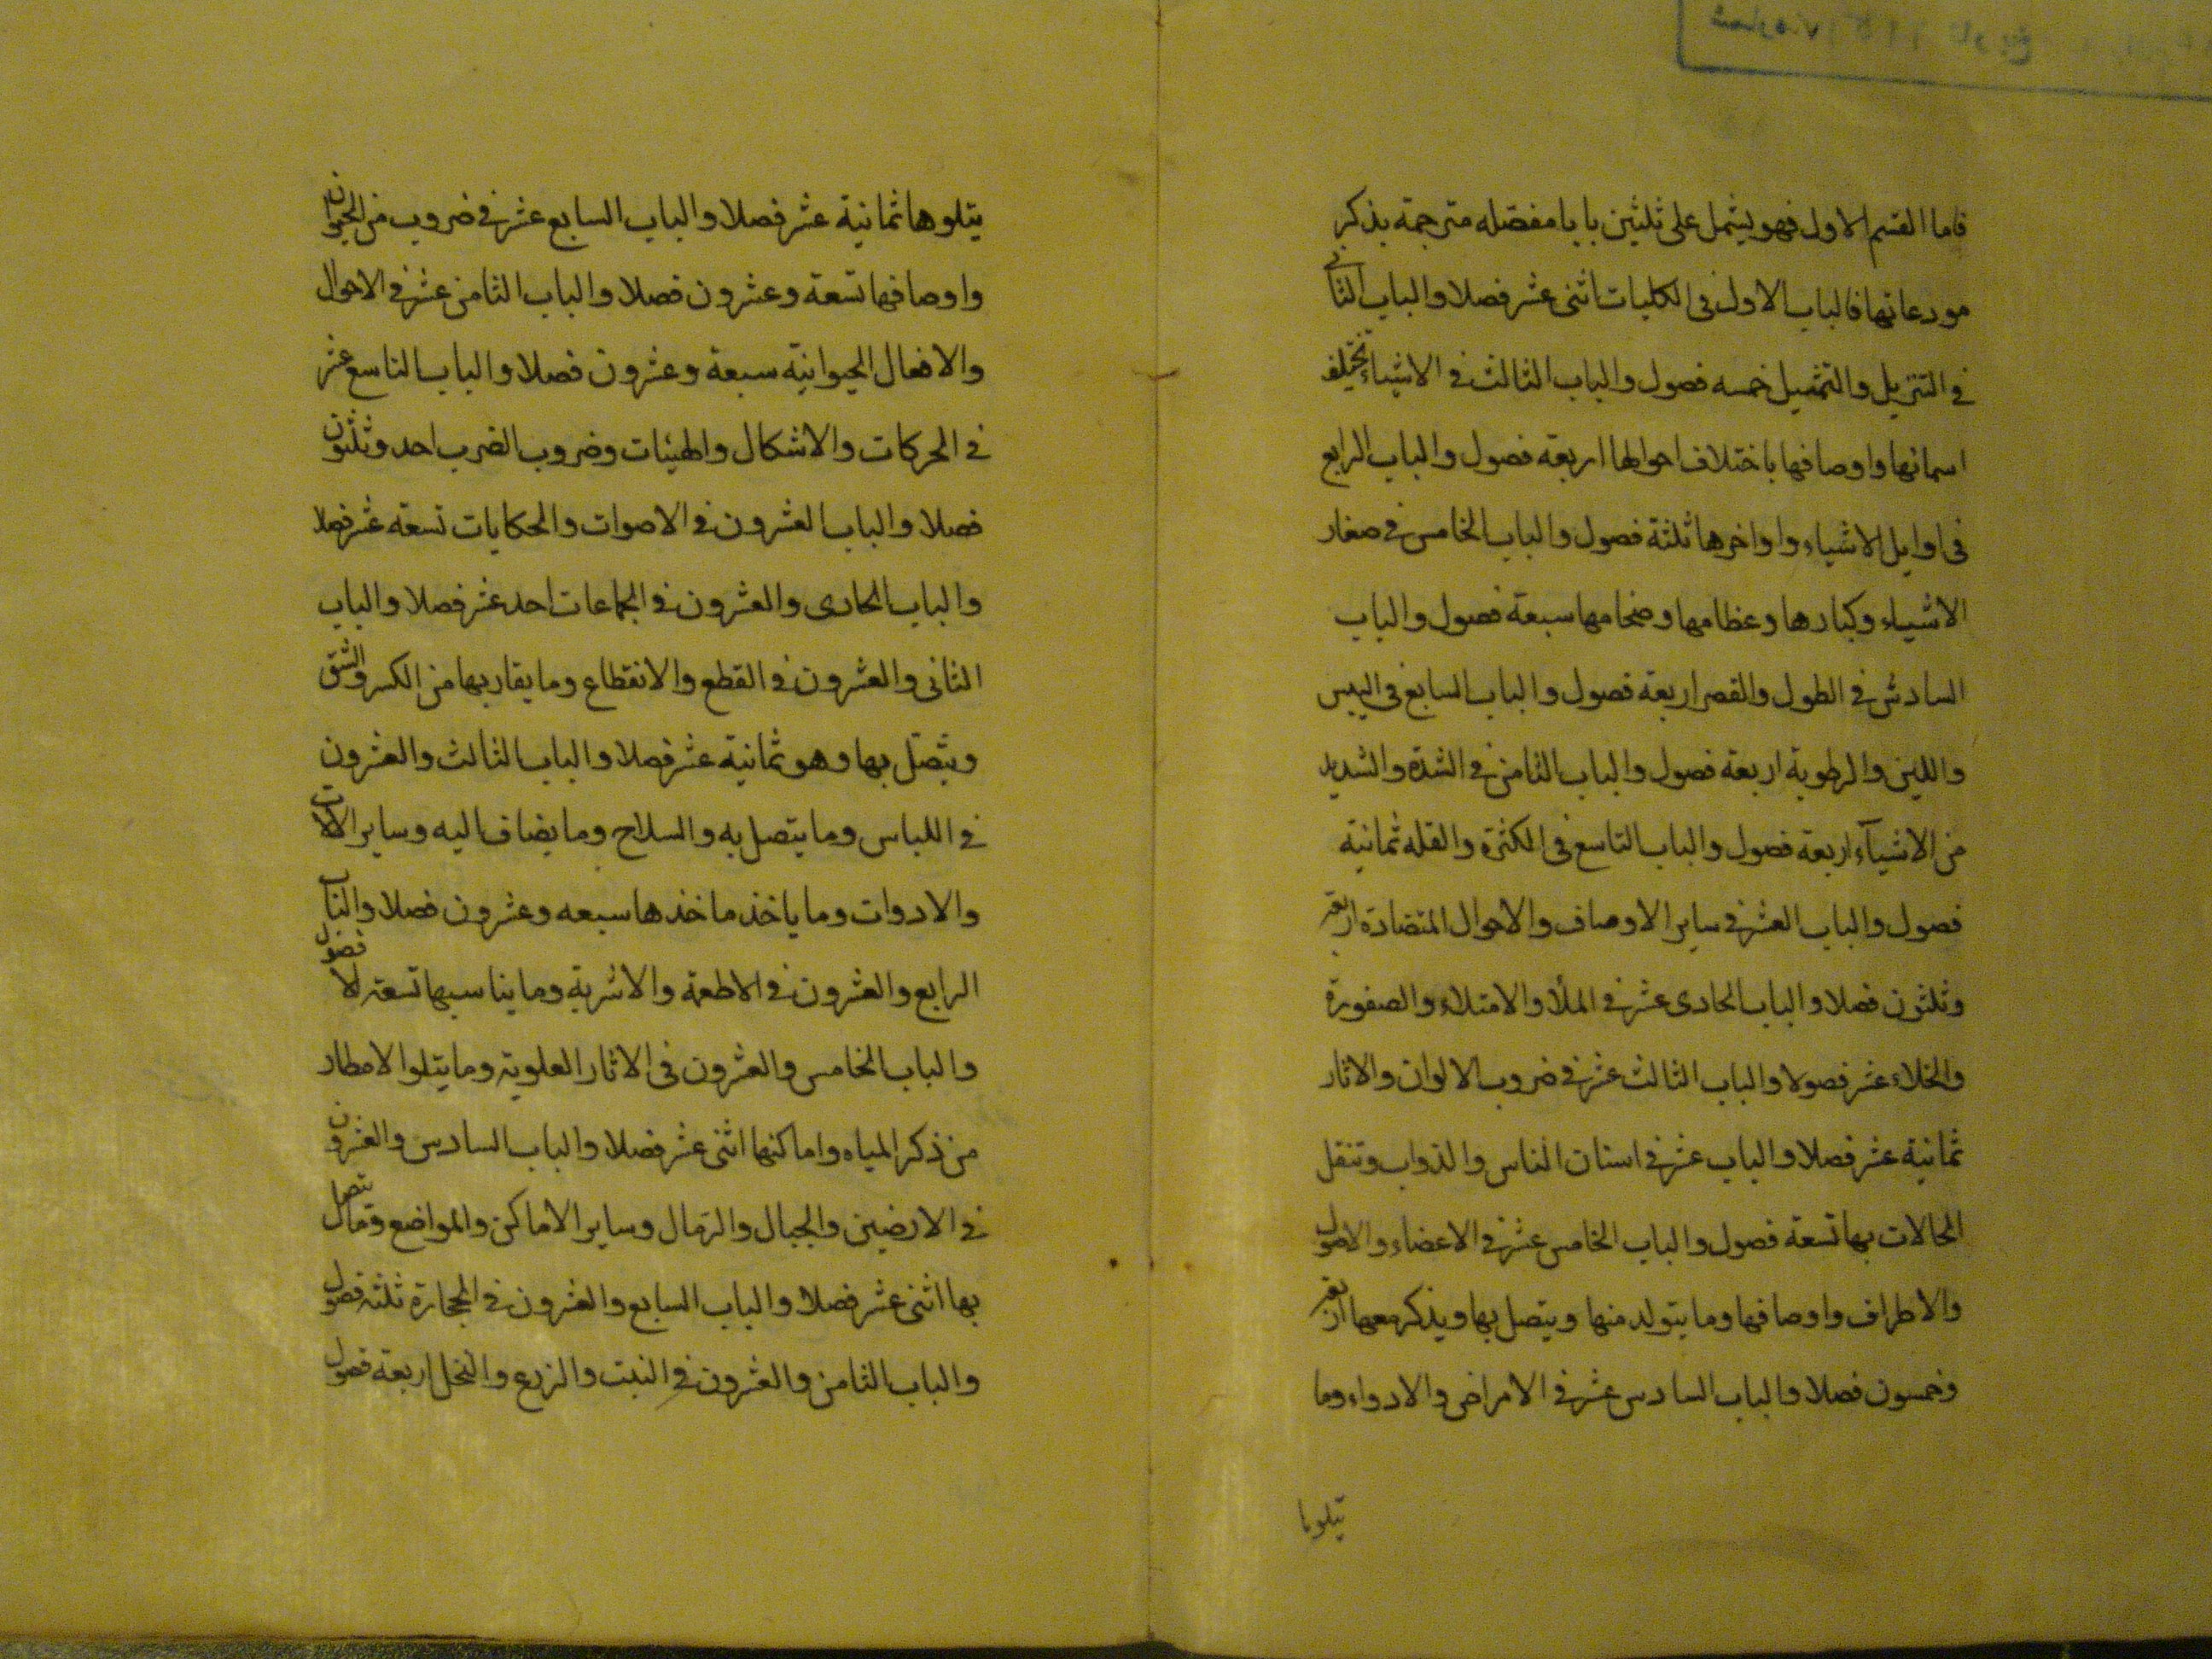 فاما القسم الاول فهو يشمل على ثلثين بابا مفصله مترجمة بذكر
مودعاتها فالباب الاول فى الكليات اثنى عشر فصلا والباب الثانى
فى التنزيل والتمثيل خمسه فصول والباب الثالث فى الاشياء تختلف
اسمائها واوصافها باختلاف احوالها اربعة فصول والباب الرابع
فى اوايل الاشياء واواخرها ثلثة فصول والباب الخامس فى صغار
الاشياء وكبارها وعظامها وضخامها سبعة فصول والباب
السادس فى الطول والقصر اربعة فصول والباب السابع فى اليبس
واللين والرطوبة اربعة فصول والباب الثامن فى الشدة والشديد
من الاشيآء اربعة فصول والباب التاسع فى الكثرة والقله ثمانية
فصول والباب العشر فى ساير الاوصاف والاحوال المتضادة اربعة
وثلثون فصلا والباب الحادى عشر فى الملأ والامتلاء والصفورة
والخلاء عشر فصولا والباب الثالث عشر فى ضروب الالوان والاثار
ثمانية عشر فصلا والباب عشر فى اسنان الناس والدواب وتنقل
الحالات بها تسعة فصول والباب الخامس عشر فى الاعضاء والاصول
والاطراف واوصافها وما يتولد منها ويتصل بها ويذكر معها اربعة
وخمسون فصلا والباب السادس عشر فى الامراض والادواء وما
يتلوها
يتلوها ثمانية عشر فصلا والباب السابع عشر فى ضروب من الحيوان
واوصافها تسعة وعشرون فصلا والباب الثامن عشر فى الاحوال
والافعال الحيوانية سبعة وعشرون فصلا والباب التاسع عشر
فى الحركات والاشكال والهيئات وضروب الضرب احد وثلثون
فصلا والباب العشرون فى الاصوات والحكايات تسعة عشر فصلا
والباب الحادى والعشرون فى الجماعات احد عشر فصلا والباب
الثانى والعشرون فى القطع والانقطاع وما يقاربها من الكسر والشق
ويتصل بها وهو ثمانية عشر فصلا والباب الثالث والعشرون
فى اللباس وما يتصل به والسلاح وما يضاف اليه وساير الالات
والادوات وما ياخذ ماخذها سبعه وعشرون فصلا والباب
الرابع والعشرون فى الاطعمة والاشربة وما يناسبها تسعة فصول
والباب الخامس والعشرون فى الاثار العلوية وما يتلوا الامطار
من ذكر المياه واماكنها اثنى عشر فصلا والباب السادس والعشرون
فى الارضين والجبال والرمال وساير الاماكن والمواضع وما يتصل
بها اثنى عشر فصلا والباب السابع والعشرون فى الحجارة ثلثة فصول
والباب الثامن والعشرون فى النبت والزرع والنخل اربعة فصول